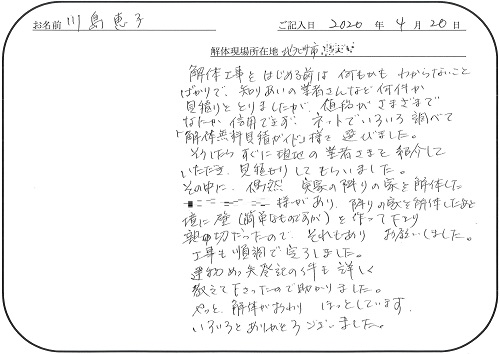 お名前 川島恵子 ご記入日 2020 年 4 月 20 日
解体現場所在地 北九州市
解体工事をはじめる前は何もかもわからないこと
ばかりで、知りあいの業者さんなど何件か
見積りをとりましたが、値段がさまざまで
なんだか信用できず、ネットでいろいろ調べて
「解体無料見積ガイド」様を選びました。
そうしたらすぐに現地の業者さまを紹介して
いただき、見積もりしてもらいました。
その中に、偶然 実家の隣りの家を解体した
様があり、隣りの家を解体したあと
境に壁(簡単なものですが)を作って下さり
親切だったので、それもあり お願いしました。
工事も順調で完了しました。
建物めっ失登記の件も詳しく
教えて下さったので助かりました。
やっと、解体がおわり ほっとしています。
いろいろとありがとうございました。